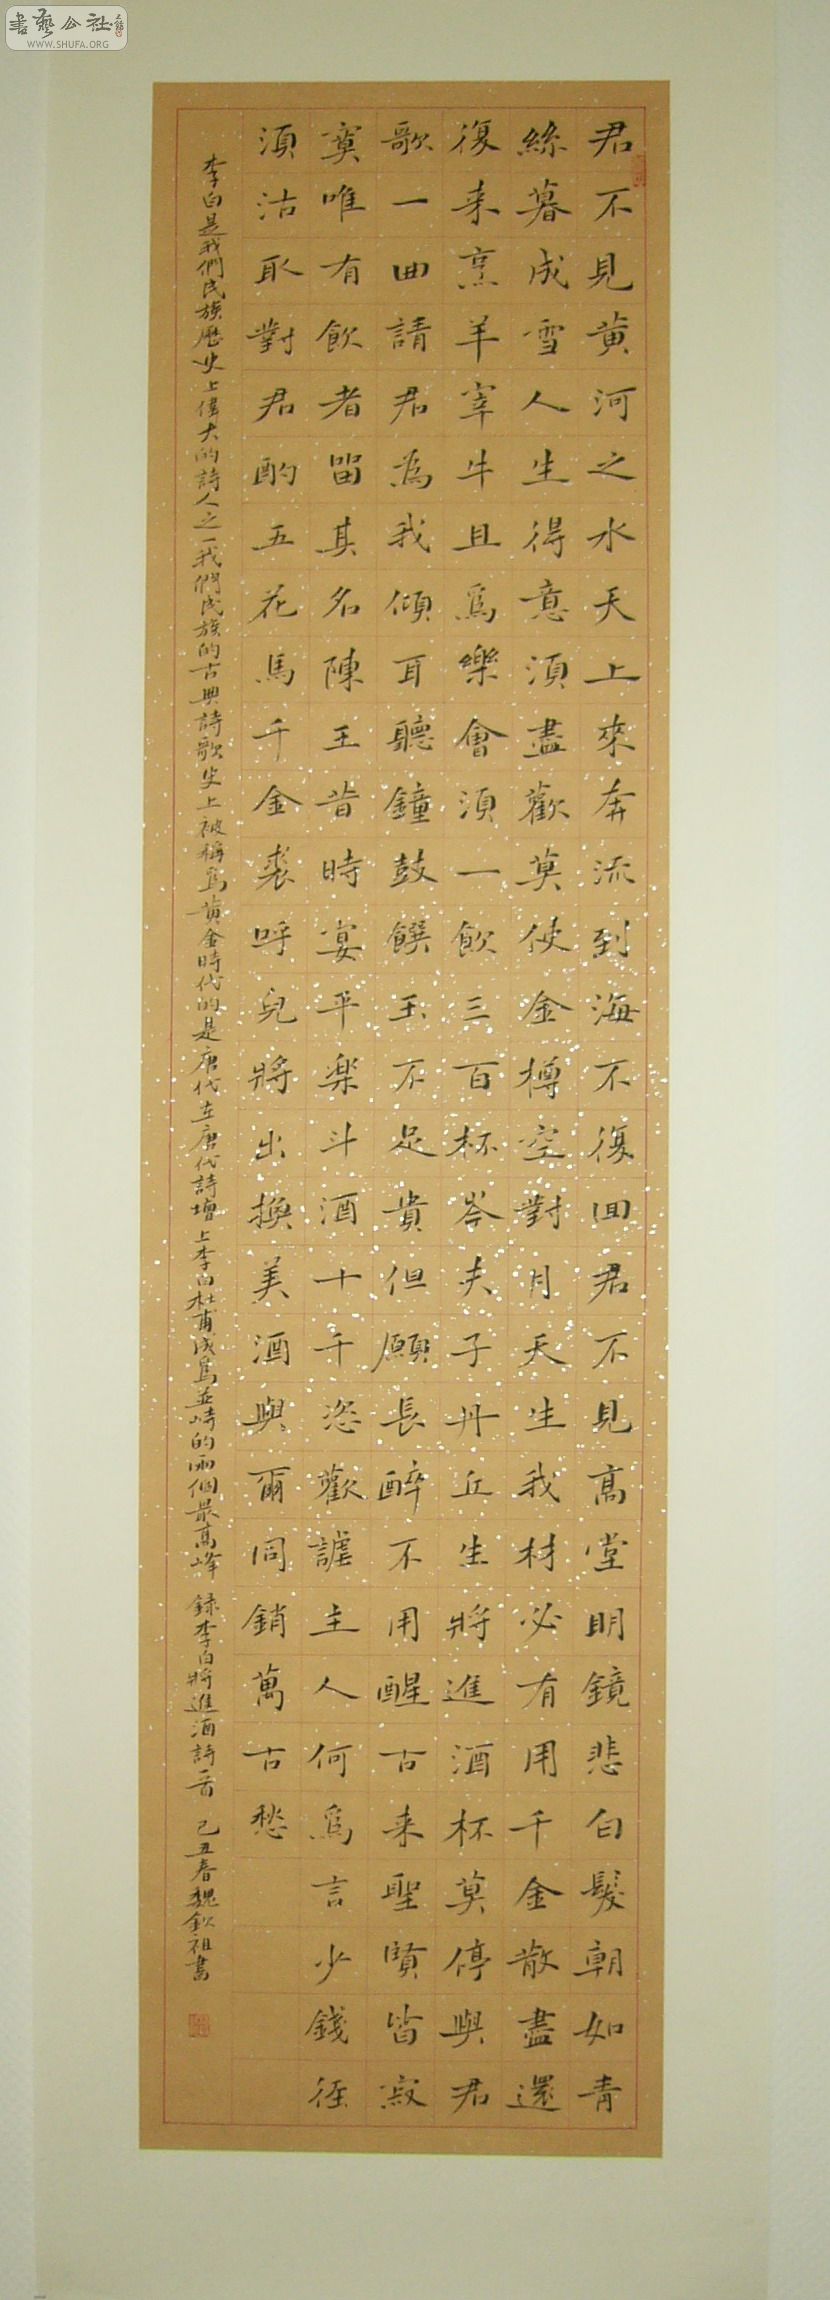 書藝公社
WWW.SHUFA.ORG
君不見黃河之水天上來奔流到海不復回君不見高堂明鏡悲白髮朝如青
絲暮成雪人生得意須盡歡莫使金樽空對月天生我材必有用千金散盡還
復来烹羊宰牛且為樂會須一飲三百杯岑夫子丹丘生將進酒杯莫停與君
歌一曲請君為我傾耳聽鐘鼓饌玉不足貴但願長醉不用醒古来聖賢皆寂
寞唯有飲者留其名陳王昔時宴平楽斗酒十千恣歡謔主人何為言少錢径
須沽取對君酌五花馬千金裘呼兒將出換美酒與爾同銷萬古愁
李白是我們民族歷史上偉大的詩人之一我們民族的古典詩歌史上被稱為黃金時代的是唐代在唐代詩壇上李白杜甫成為並峙的兩個最高峰 録李白將進酒詩一首 己丑春魏欽祖書